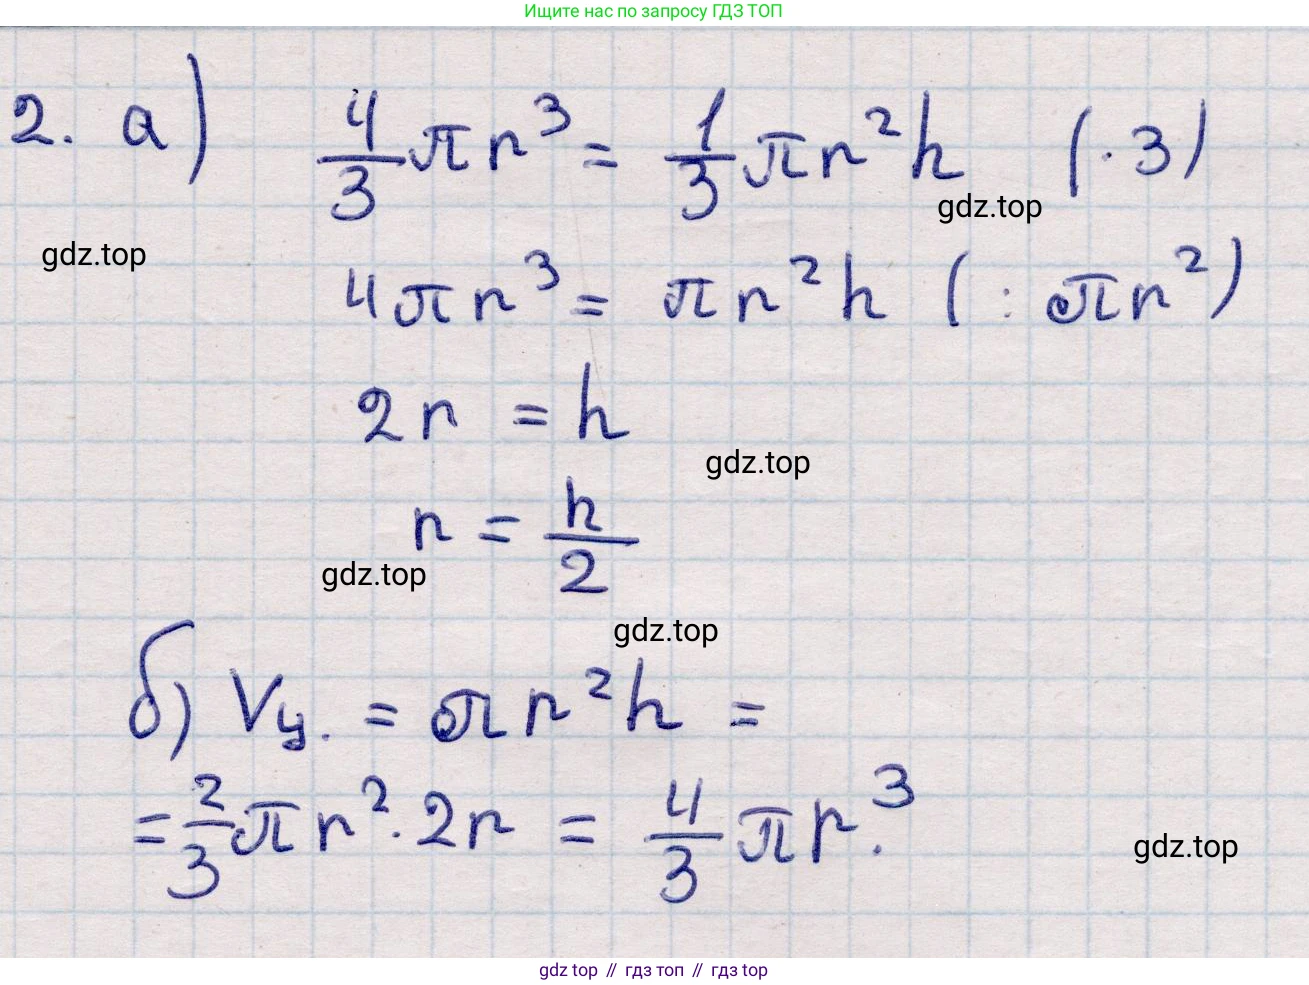 Ищите нас по запросу ГДЗ ТОП
2. а) 4/3 πr³ = 1/3 πr²h (·3)
gdz.top
gdz.top
4πr³ = πr²h (: πr²)
2r = h
gdz.top
r = h/2
gdz.top
gdz.top
б) Vц. = πr²h =
= 2/3 πr² · 2r = 4/3 πr³.
gdz.top
gdz top // гдз топ // гдз top